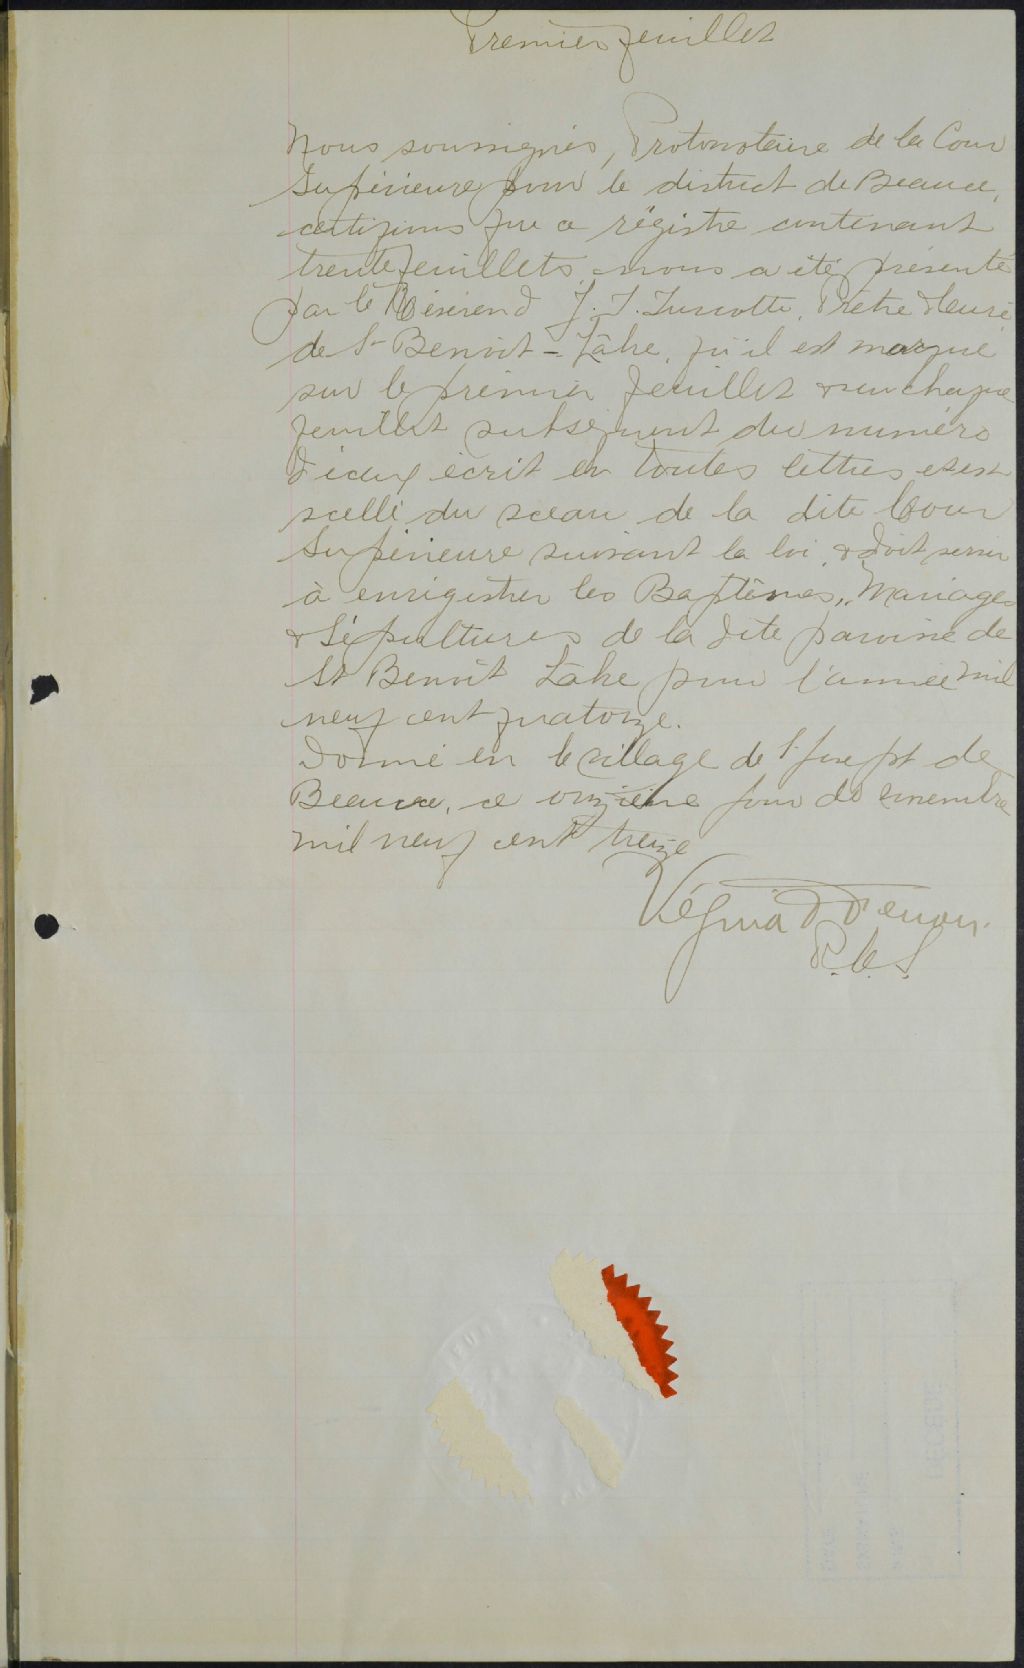 Premier feuillet
Nous soussignés, Protonotaire de la Cour
Supérieure pour le district de Beauce,
certifions que ce régistre contenant
trente feuillets nous a été présenté
par le Révérend J. T. Turcotte, Prêtre & curé
de St Benoit-Lâbre, qu'il est marqué
sur le premier feuillet & sur chaque
feuillet subséquent du numéro
d'iceux écrit en toutes lettres & est
scellé du sceau de la dite Cour
Supérieure suivant la loi & doit servir
à enrégistrer les Baptêmes, Mariages
& Sépultures de la dite paroisse de
St Benoit Lâbre pour l'année mil
neuf cent quatorze.
Donné en le village de St Joseph de
Beauce, ce onzième jour de
mil neuf cent treize
P.C.S.